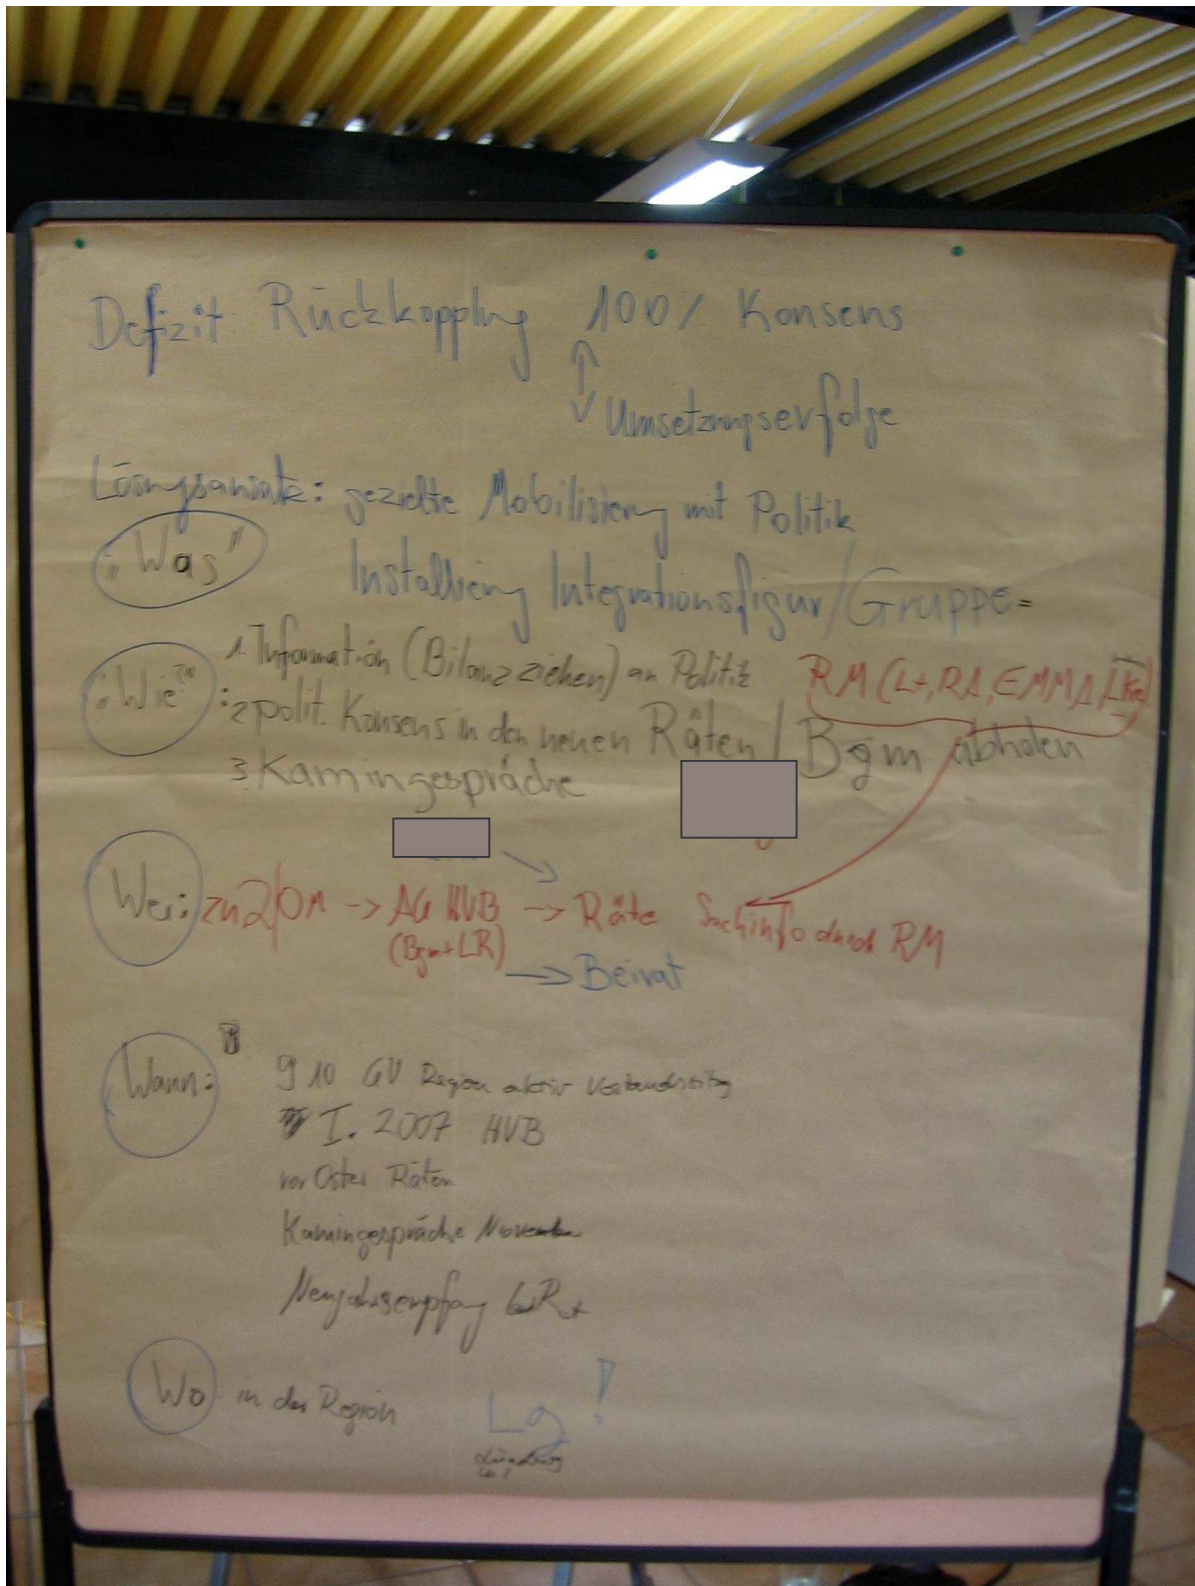 Defizit Rückkopplung 100% Konsens
Umsetzungserfolge
Lösungsansatz: gezielte Mobilisierung mit Politik
"Was"
Installierung Integrationsfigur/Gruppe=
1. Information (Bilanz ziehen) an Politik RM (L+, RA, EMMA, LKe)
"Wie" : 2 polit. Konsens in den neuen Räten / Bgm abholen
3 Kamingespräche
Wer: zu 2/ OM -> AG HVB -> Räte Sachinfo durch RM
(Bgm+LR)
-> Beirat
Wann: 9 10 GV Region aktiv
I. 2007 HVB
vor Oster Räten
Kamingespräche November
Neujahrsempfang
Wo in der Region Lg!